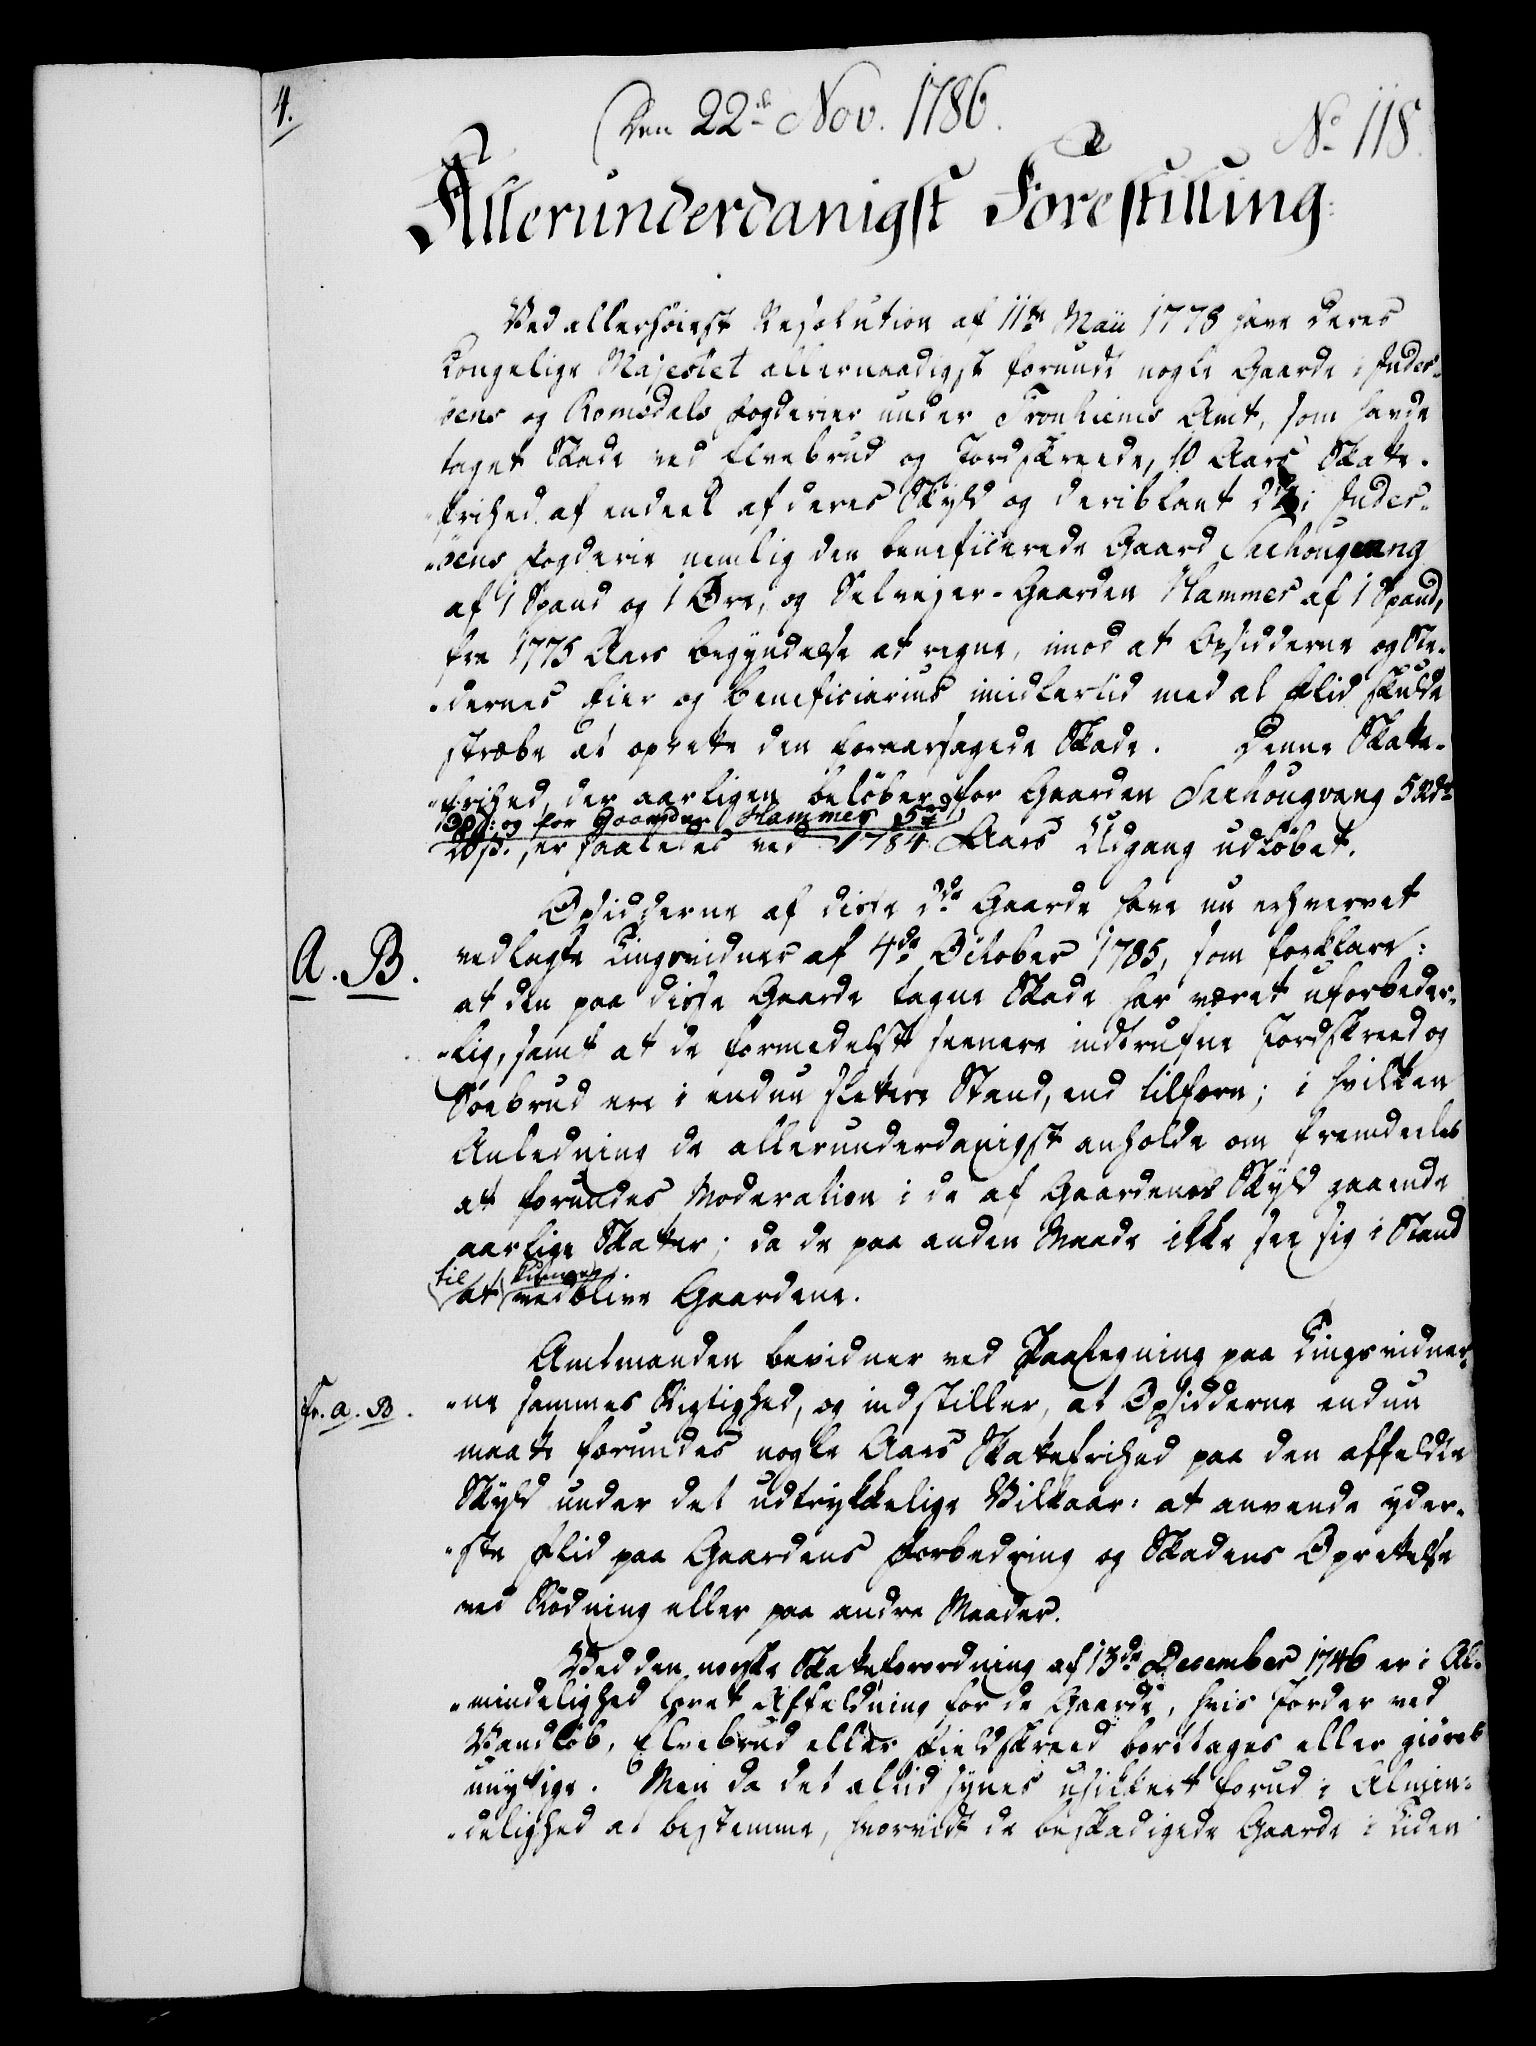 4.
Den 22de Nov. 1786.
No 118.
Allerunderdanigst Forestilling:
Ved allerhöiest Resolution af 11te Maii 1778 have Deres
Kongelige Majestet allernaadigst forundt nogle Gaarde i Inder-
öens og Romsdals Fogderier under Tronhiems Amt, som havde
taget Skade ved Elvebrud og Jordskreede, 10 Aars Skatte-
frihed af endeel af deres Skyld og deriblant 2de i Inder-
öens Fogderie nemlig den beneficerede Gaard Sachougvang
af 1 Spand og 1 Øre, og Selvejer-Gaarden Hammer af 1 Spand,
fra 1775 Aars Begyndelse at regne, imod at Opsidderne og Ste-
dernes Eier og Beneficiarius imidlertid med al Flid skulde
stræbe at oprette den foraarsagede Skade. Denne Skatte-
frihed, der aarligen beløber for Gaarden Sachougvang 5 Rdr
og for Gaarden Hammer 5 rd
20 s., er saaledes ved 1784 Aars Udgang udløbet.
Opsidderne af disse 2de Gaarde have nu erhvervet
A. B.
vedlagte Tingsvidner af 4de October 1785, som forklare:
at den paa disse Gaarde tagne Skade har været uforbeder-
lig, samt at de formedelst seenere indtrufne Jordskreed og
Söebrud ere i endnu slettere Stand, end tilforn; i hvilken
Anledning de allerunderdanigst anholde om fremdeeles
at forundes Moderation i de af Gaardenes Skyld gaaende
aarlige Skatter; da de paa anden Maade ikke see sig i Stand
til kunne
at vedblive Gaardene.
Amtmanden bevidner ved Paategning paa Tingsvidner-
fr. a. B.
ne sammes Rigtighed, og indstiller, at Opsidderne endnu
maatte forundes nogle Aars Skattefrihed paa den affældte
Skyld under det udtrykkelige Vilkaar: at anvende yder-
ste Flid paa Gaardens Forbedring og Skadens Oprettelse
ved Rödning eller paa andre Maader.
Ved den norske Skatteforordning af 13de December 1746 er i Al-
mindelighed lovet Affældning for de Gaarde, hvis Jorder ved
Vandløb, Elvebrud eller Fieldskreed borttages eller giöres
unyttige. Men da det altid synes usikkert forud i Almin-
delighed at bestemme, hvorvidt de beskadigede Gaarde i Tiden